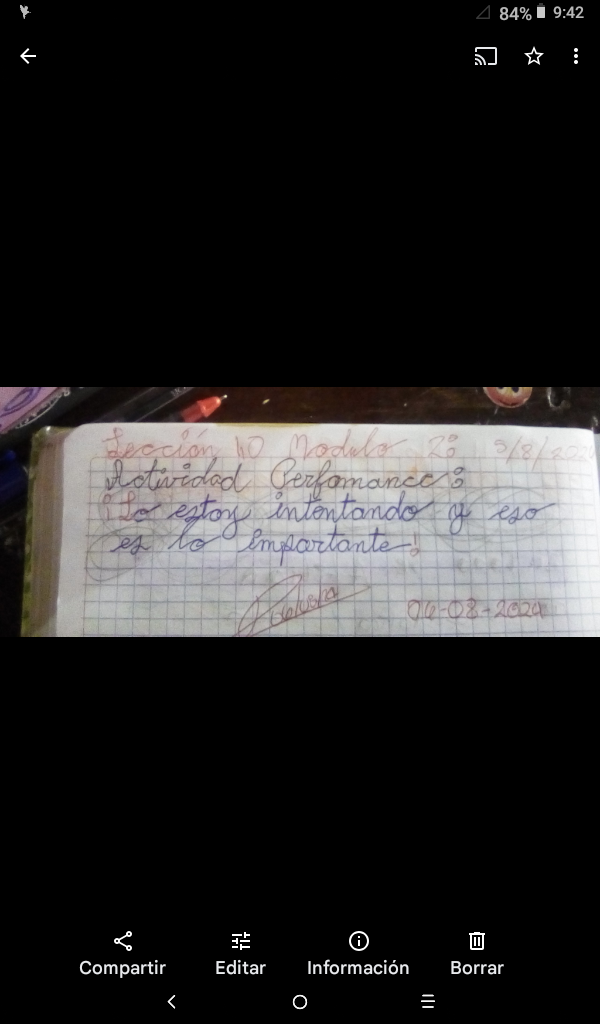 84% 9:42
Lección 10 Modulo 2:
Actividad Perfomance:
¡Lo estoy intentando y eso
es lo importante!
06-08-2024
Compartir Editar Información Borrar